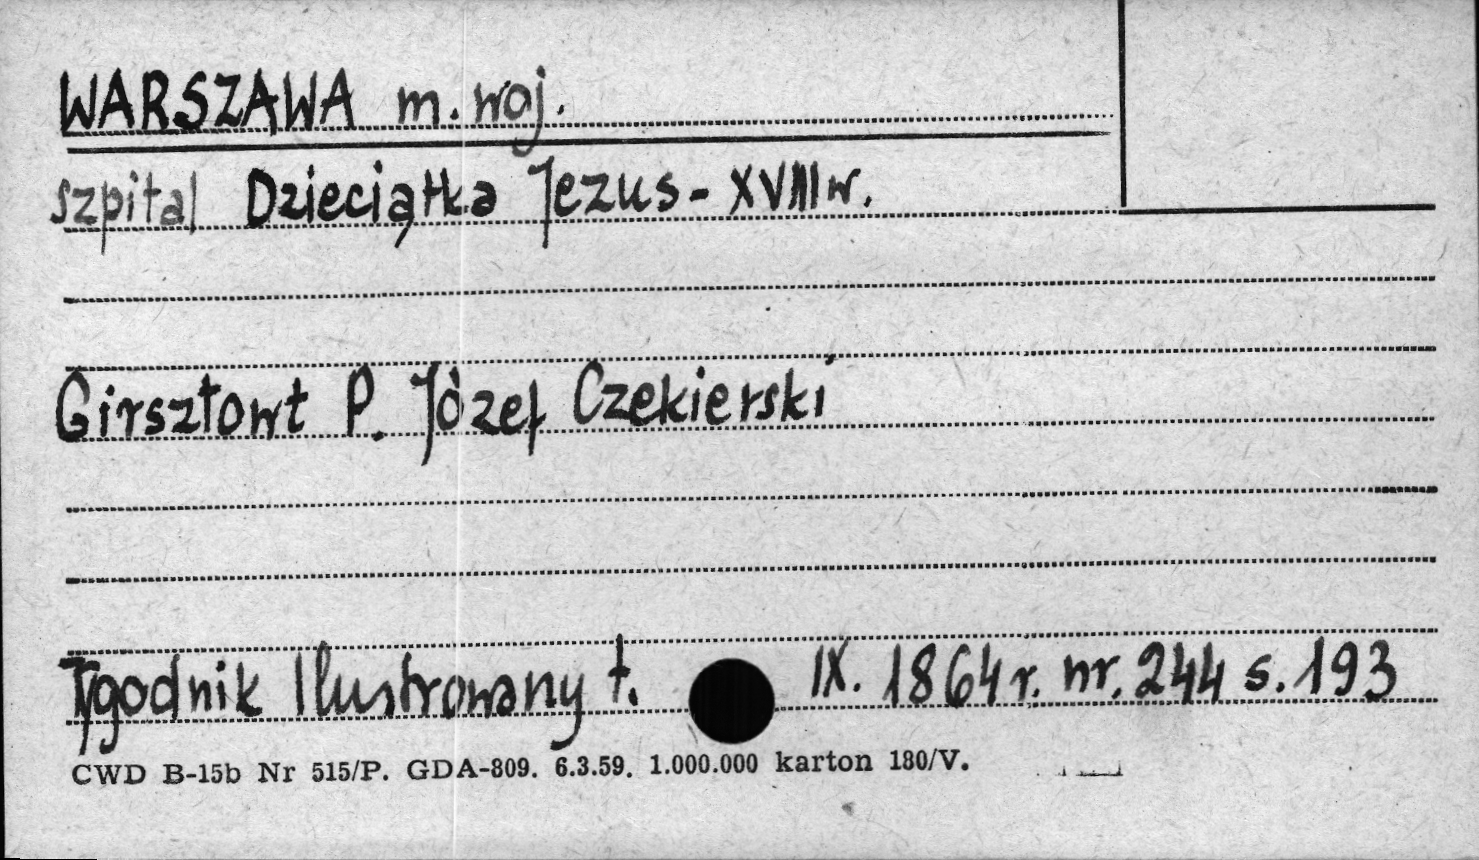 WARSZAWA m. woj.
szpital Dzieciątka Jezus - XVIII w.
Girsztowt P. Józef Czekierski
Tygodnik Ilustrowany t. IX. 1864 r. nr. 244 s. 193
CWD B-15b Nr 515/P. GDA-809. 6.3.59. 1.000.000 karton 180/V.